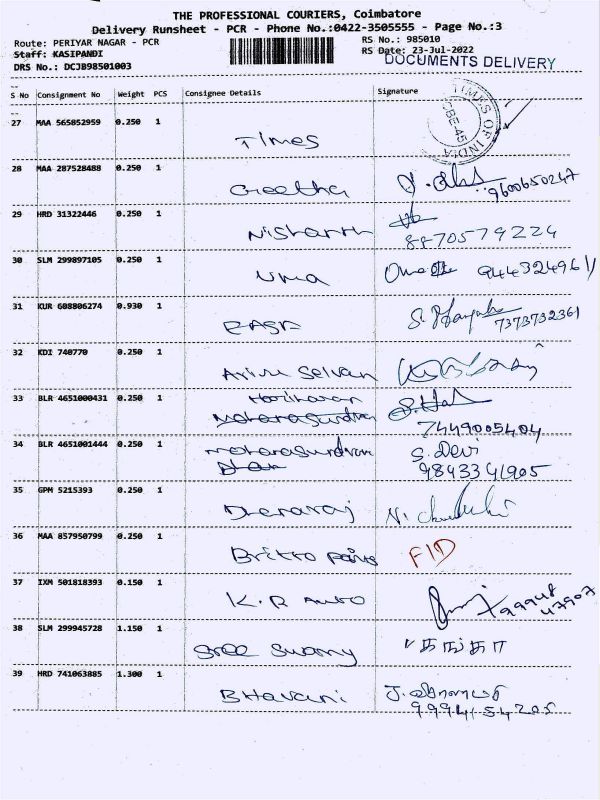 THE PROFESSIONAL COURIERS, Coimbatore
Delivery Runsheet - PCR - Phone No.:0422-3505555 - Page No.:3
Route: PERIYAR NAGAR - PCR RS No.: 985010
Staff: KASIPANDI RS Date: 23-Jul-2022
DRS No.: DCJB98501003 DOCUMENTS DELIVERY
S No Consignment No Weight PCS Consignee Details Signature
TIMES OF INDIA CBE-45
27 MAA 565852959 0.250 1 Times
28 MAA 287528488 0.250 1 Geetha 9600650247
29 HRD 31322446 0.250 1 Nishanth 8870579224
30 SLM 299897105 0.250 1 UMA 944324961
31 KUR 608806274 0.930 1 7373732361
32 KDI 740770 0.250 1 Arivu Selvan
33 BLR 4651000431 0.250 1 Hariharan
7449005404
34 BLR 4651001444 0.250 1 S. Devi
9843341905
35 GPM 5215393 0.250 1
36 MAA 857950799 0.250 1 Britto FID
37 IXM 501818393 0.150 1 K.R Auto 99948
47907
38 SLM 299945728 1.150 1 Sree Swamy
39 HRD 741063885 1.300 1 Bhavani
9994154205